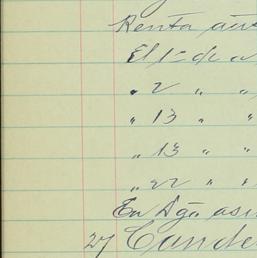 Renta
El 1º de
" 2 " "
" 13 " "
" 13 " "
" 22 " "
En
27 Cande